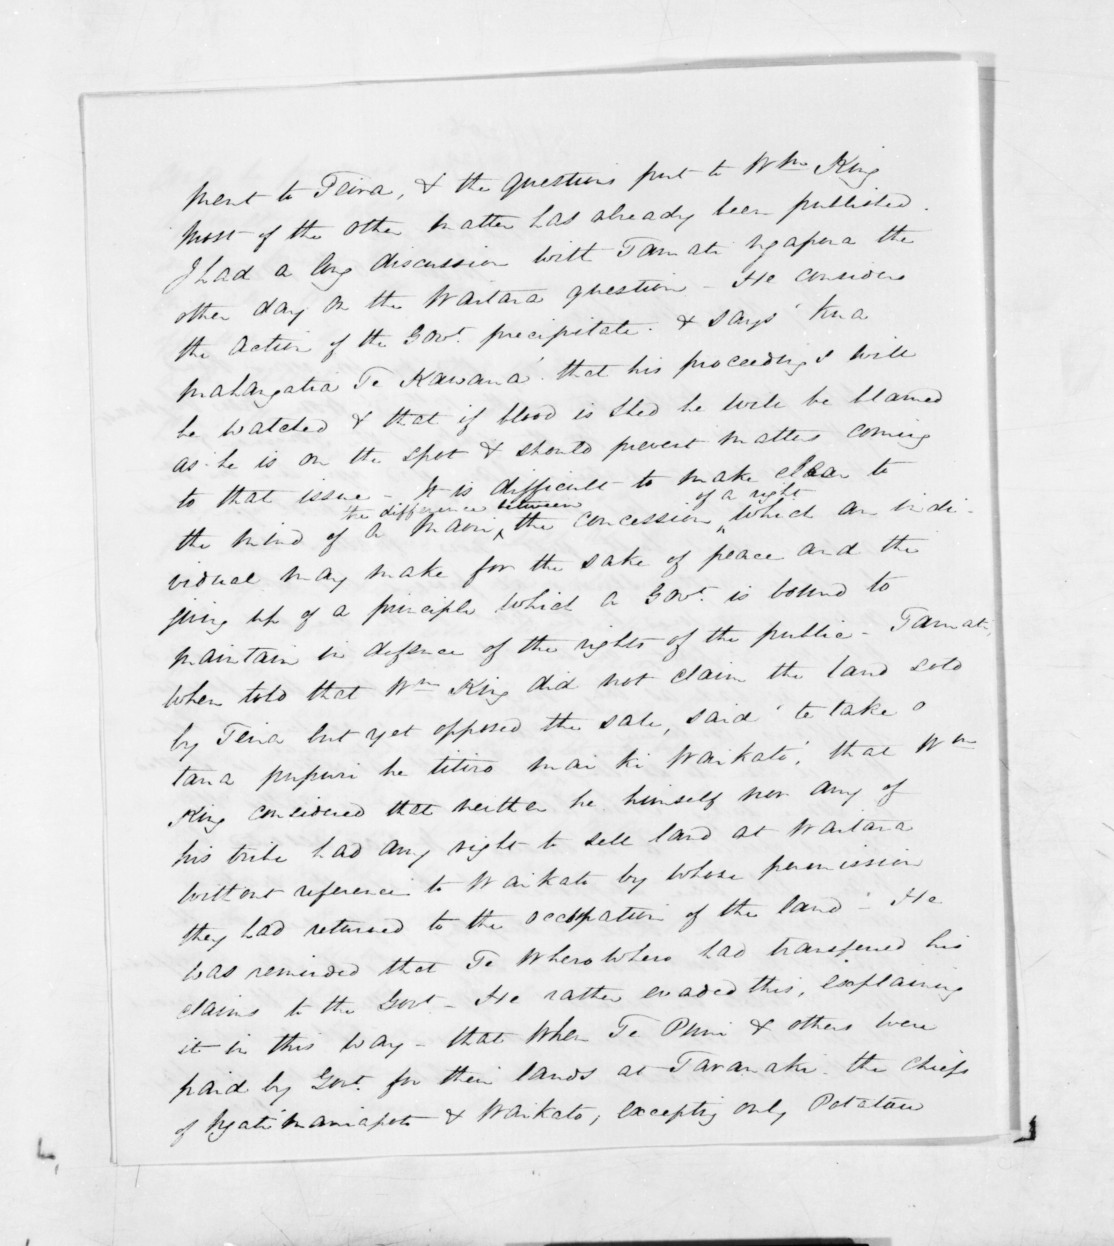 ment to Teira, & the questions put to Wm King
Most of the other matter has already been published.
I had a long discussion with Tamati Ngapora the
other day on the Waitara question - He considers
the action of the Govt. precipitate. & says 'kua
mahangatia Te Kawana' that his proceedings will
be watched & that if blood is shed he will be blamed
as he is on the spot & should prevent matters coming
to that issue - It is difficult to make clear to
the mind of a Maori the difference between the concession of a right which an indi-
vidual may make for the sake of peace and the
giving up of a principle which a Govt. is bound to
maintain in defence of the rights of the public - Tamati,
when told that Wm King did not claim the land sold
by Teira but yet opposed the sale, said 'te take o
tana pupuri he titiro mai ki Waikato', that Wm
King considered that neither he himself nor any of
his tribe had any right to sell land at Waitara
without reference to Waikato by whose permission
they had returned to the occupation of the land - He
was reminded that Te Wherowhero had transferred his
claims to the Govt - He rather evaded this, explaining
it in this way - that when Te Puni & others were
paid by Govt. for their lands at Taranaki the chiefs
of Ngatimaniapoto & Waikato, excepting only Potatau